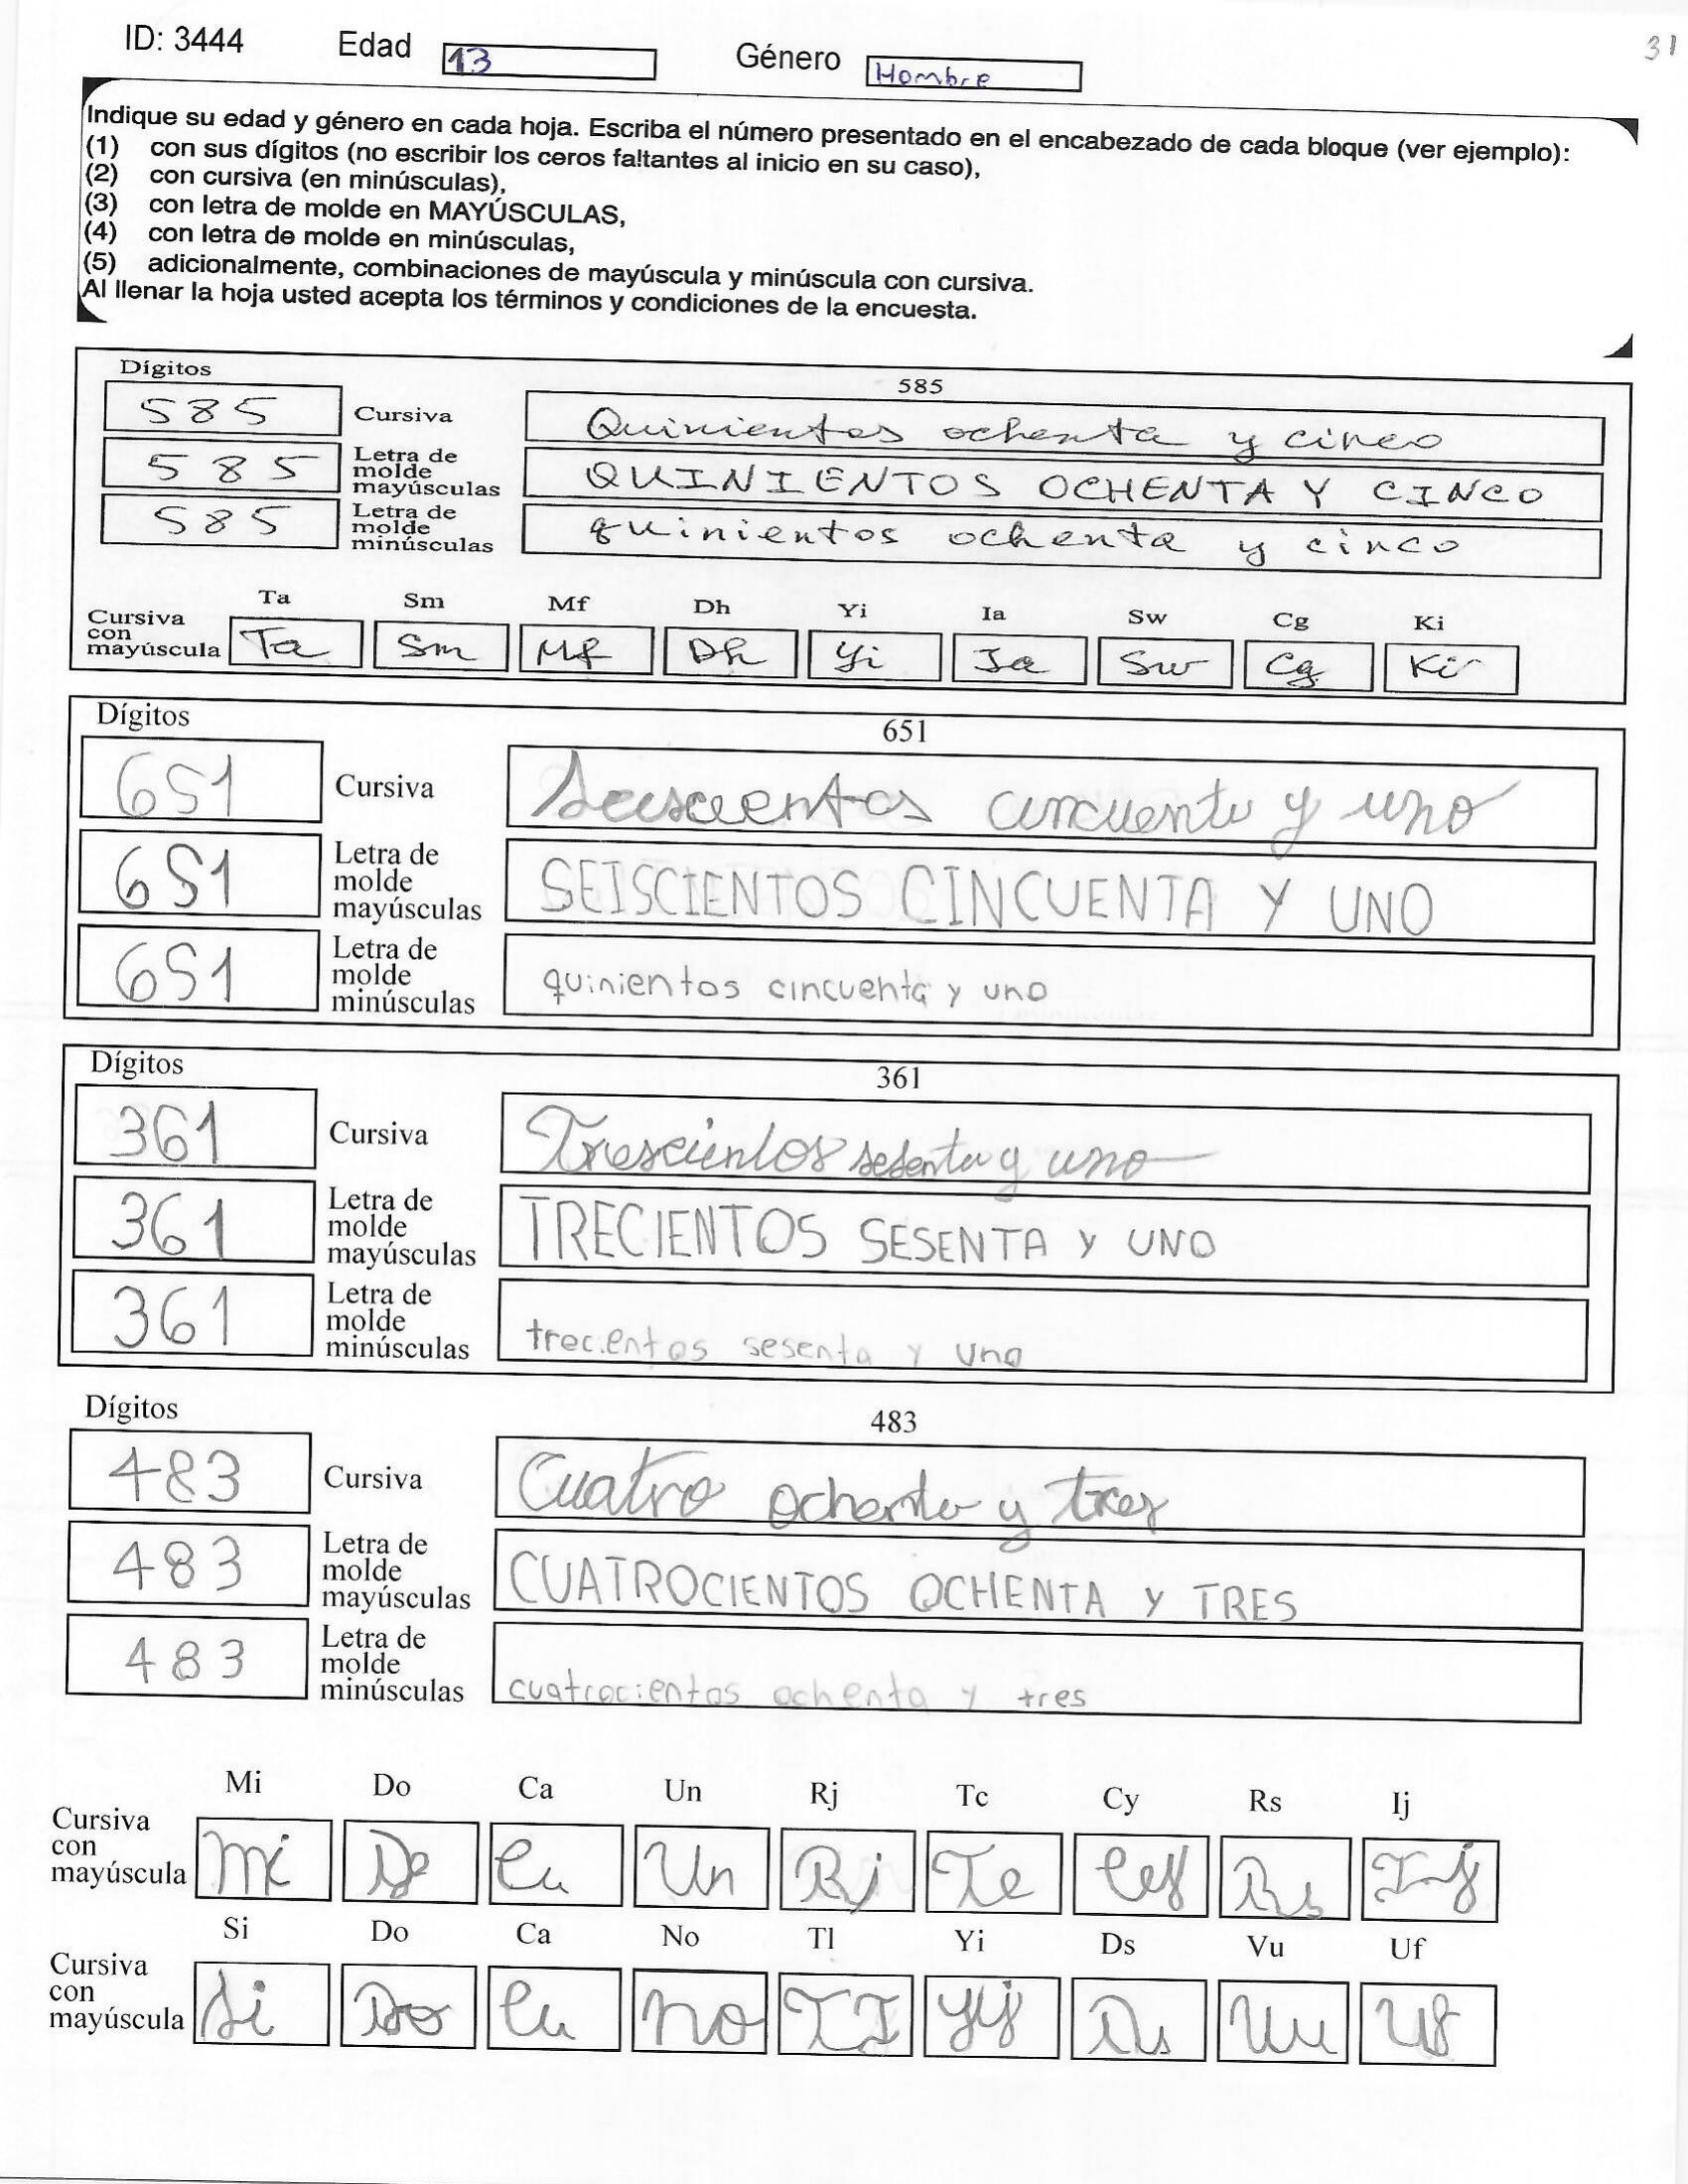 ID: 3444 Edad 13 Género Hombre 31
Indique su edad y género en cada hoja. Escriba el número presentado en el encabezado de cada bloque (ver ejemplo):
(1) con sus dígitos (no escribir los ceros faltantes al inicio en su caso),
(2) con cursiva (en minúsculas),
(3) con letra de molde en MAYÚSCULAS,
(4) con letra de molde en minúsculas,
(5) adicionalmente, combinaciones de mayúscula y minúscula con cursiva.
Al llenar la hoja usted acepta los términos y condiciones de la encuesta.
Dígitos 585
585 Cursiva Quinientos ochenta y cinco
585 Letra de molde mayúsculas QUINIENTOS OCHENTA Y CINCO
585 Letra de molde minúsculas quinientos ochenta y cinco
Ta Sm Mf Dh Yi Ia Sw Cg Ki
Cursiva con mayúscula Ta Sm Mf Dh Yi Ia Sw Cg Ki
Dígitos 651
651 Cursiva Seiscientos cincuenta y uno
651 Letra de molde mayúsculas SEISCIENTOS CINCUENTA Y UNO
651 Letra de molde minúsculas quinientos cincuenta y uno
Dígitos 361
361 Cursiva Trescientos sesenta y uno
361 Letra de molde mayúsculas TRECIENTOS SESENTA Y UNO
361 Letra de molde minúsculas trecientos sesenta y uno
Dígitos 483
483 Cursiva Cuatro ochenta y tres
483 Letra de molde mayúsculas CUATROCIENTOS OCHENTA Y TRES
483 Letra de molde minúsculas cuatrocientos ochenta y tres
Mi Do Ca Un Rj Tc Cy Rs Ij
Cursiva con mayúscula Mi Do Ca Un Rj Tc Cy Rs Ij
Si Do Ca No Tl Yi Ds Vu Uf
Cursiva con mayúscula Si Do Ca No Tl Yi Ds Vu Uf